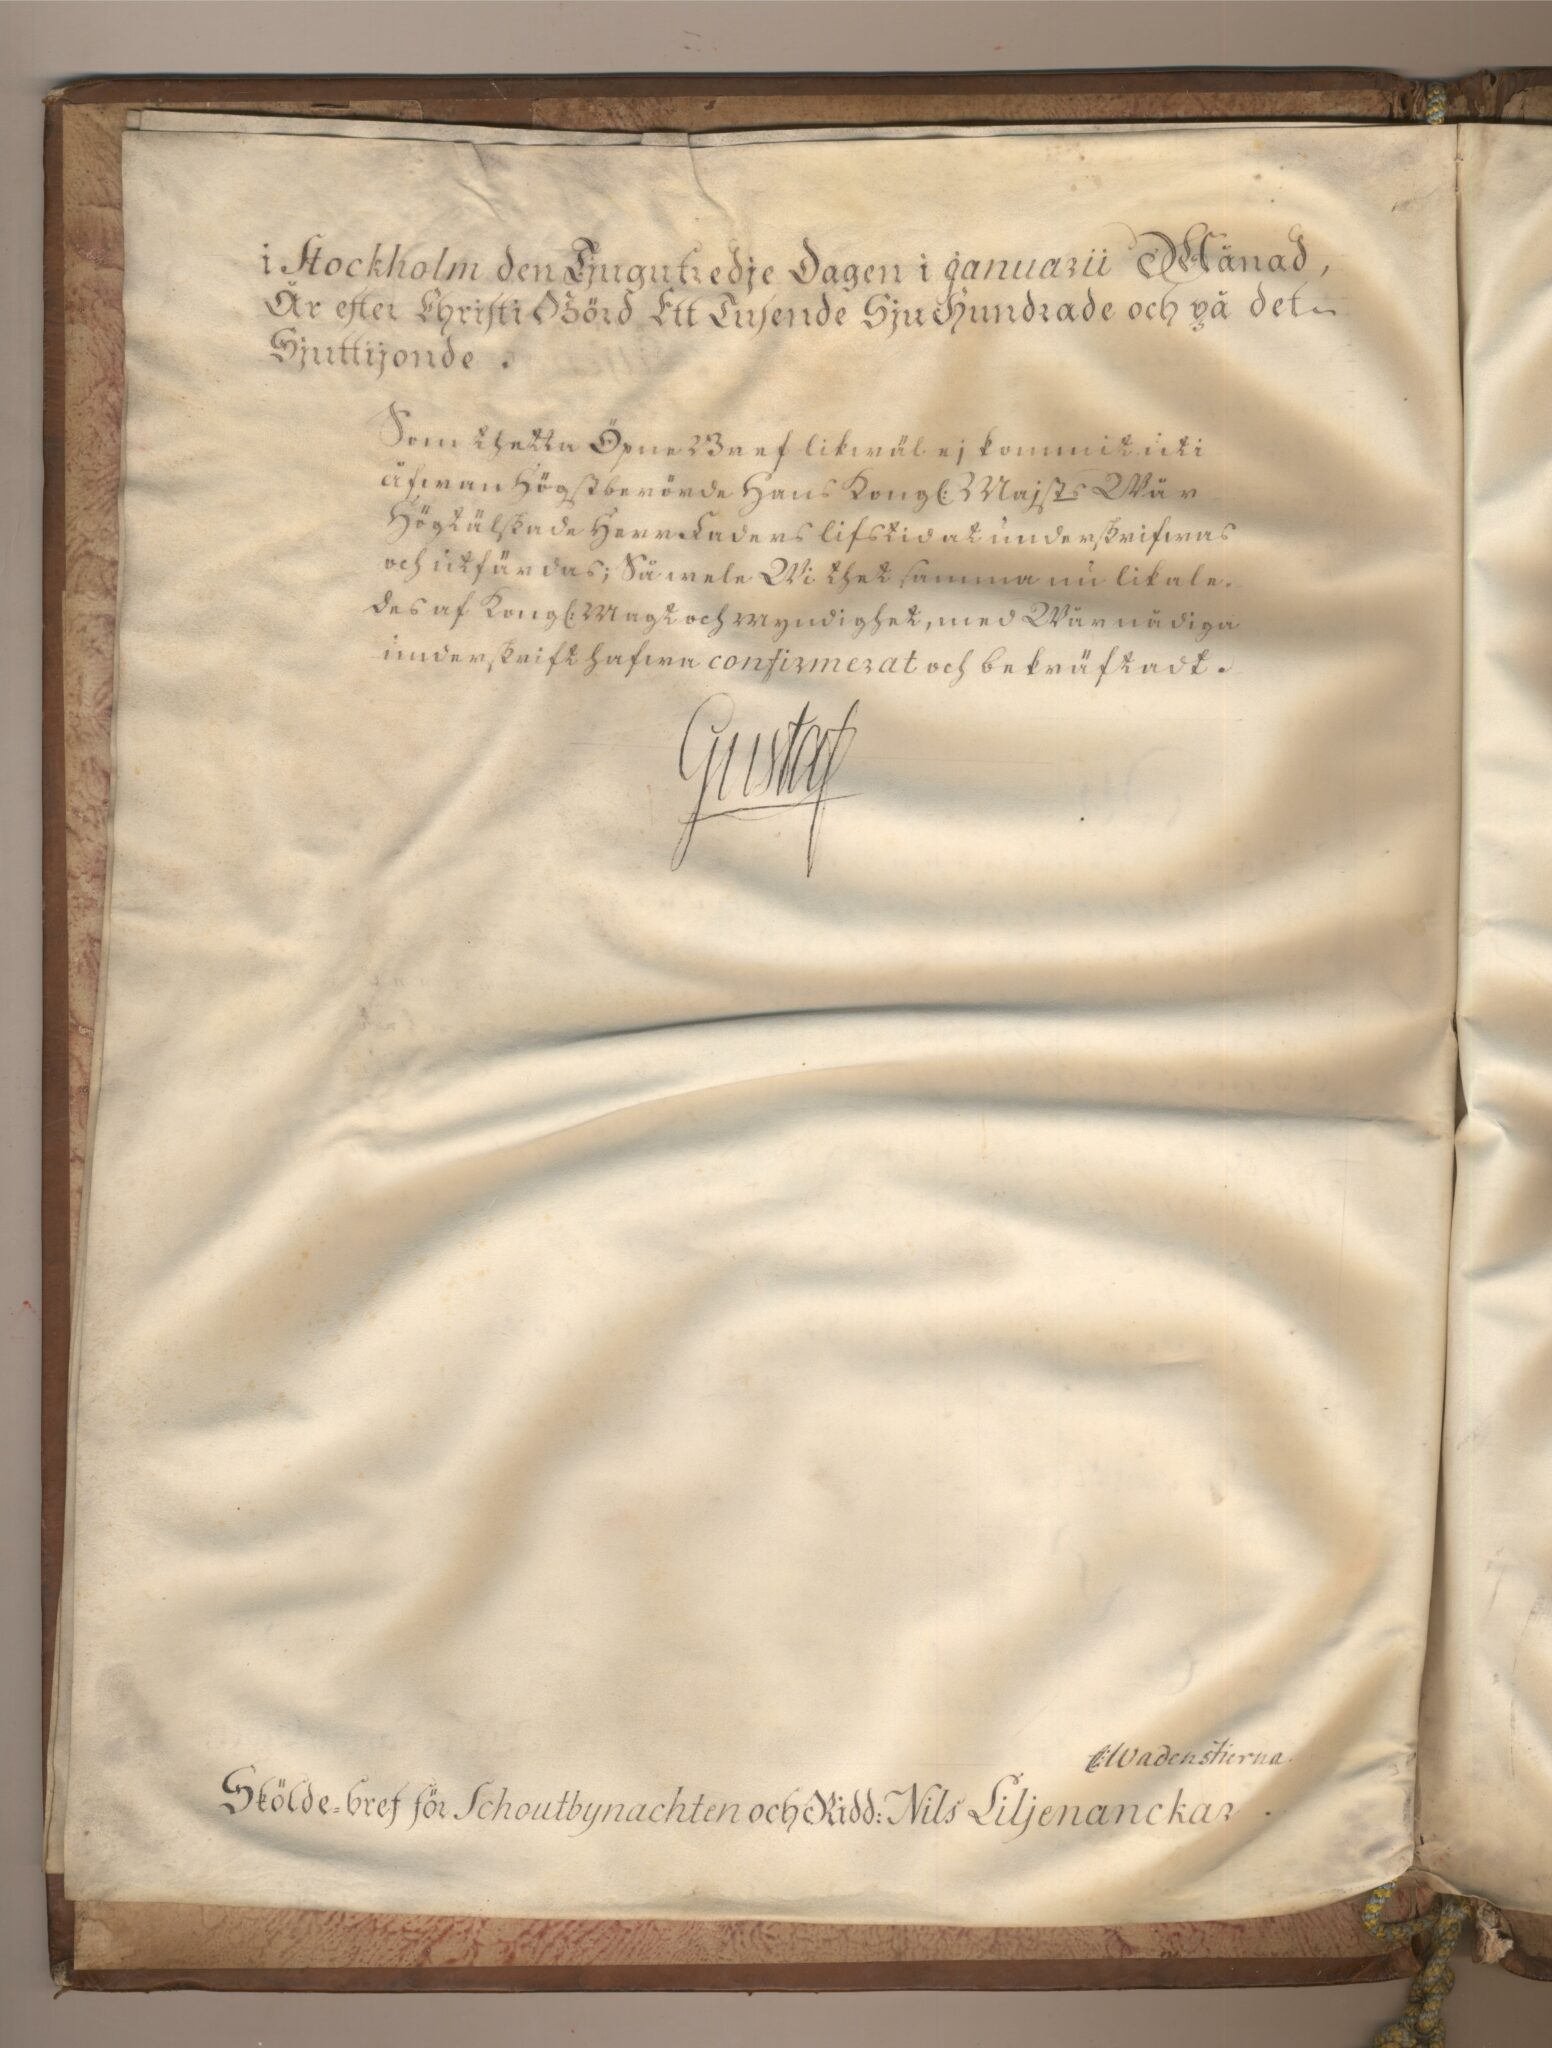 i Stockholm den Tjugutredje Dagen i januarii Månad,
År efter Christi Börd Ett Tusende Sju Hundrade och på det
Sjuttijonde.
Som thetta Öpne Bref likwäl ej kommit uti
åfwan Högstberörde Hans Kongl: Majsts Wår
Högtälskade Herr Faders lifstid at underskrifwas
och utfärdas; Så wele Wi thet samma nu likale-
des af Kongl: Magt och Myndighet, med Wår nådiga
underskrift hafwa confirmerat och bekräftadt.
Gustaf
Wadenstierna
Skölde-bref för Schoutbynachten och Ridd: Nils Liljenanckar.